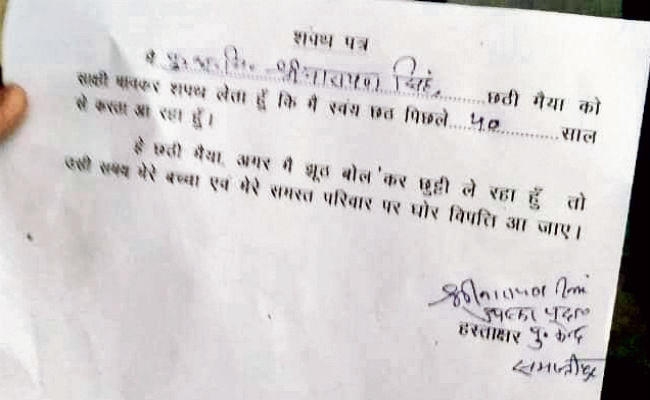 शपथ पत्र
मै पु०अ०नि० श्रीनारायण सिंह, छठी मैया को
साक्षी मानकर शपथ लेता हूँ कि मै स्वंय छठ पिछले ५० साल
से करता आ रहा हूँ।
हे छठी मैया, अगर मै झूठ बोल कर छुट्टी ले रहा हूँ तो
उसी समय मेरे बच्चा एवं मेरे समस्त परिवार पर घोर विपत्ति आ जाए।
श्रीनारायण सिंह
हस्ताक्षर पु० केन्द्र